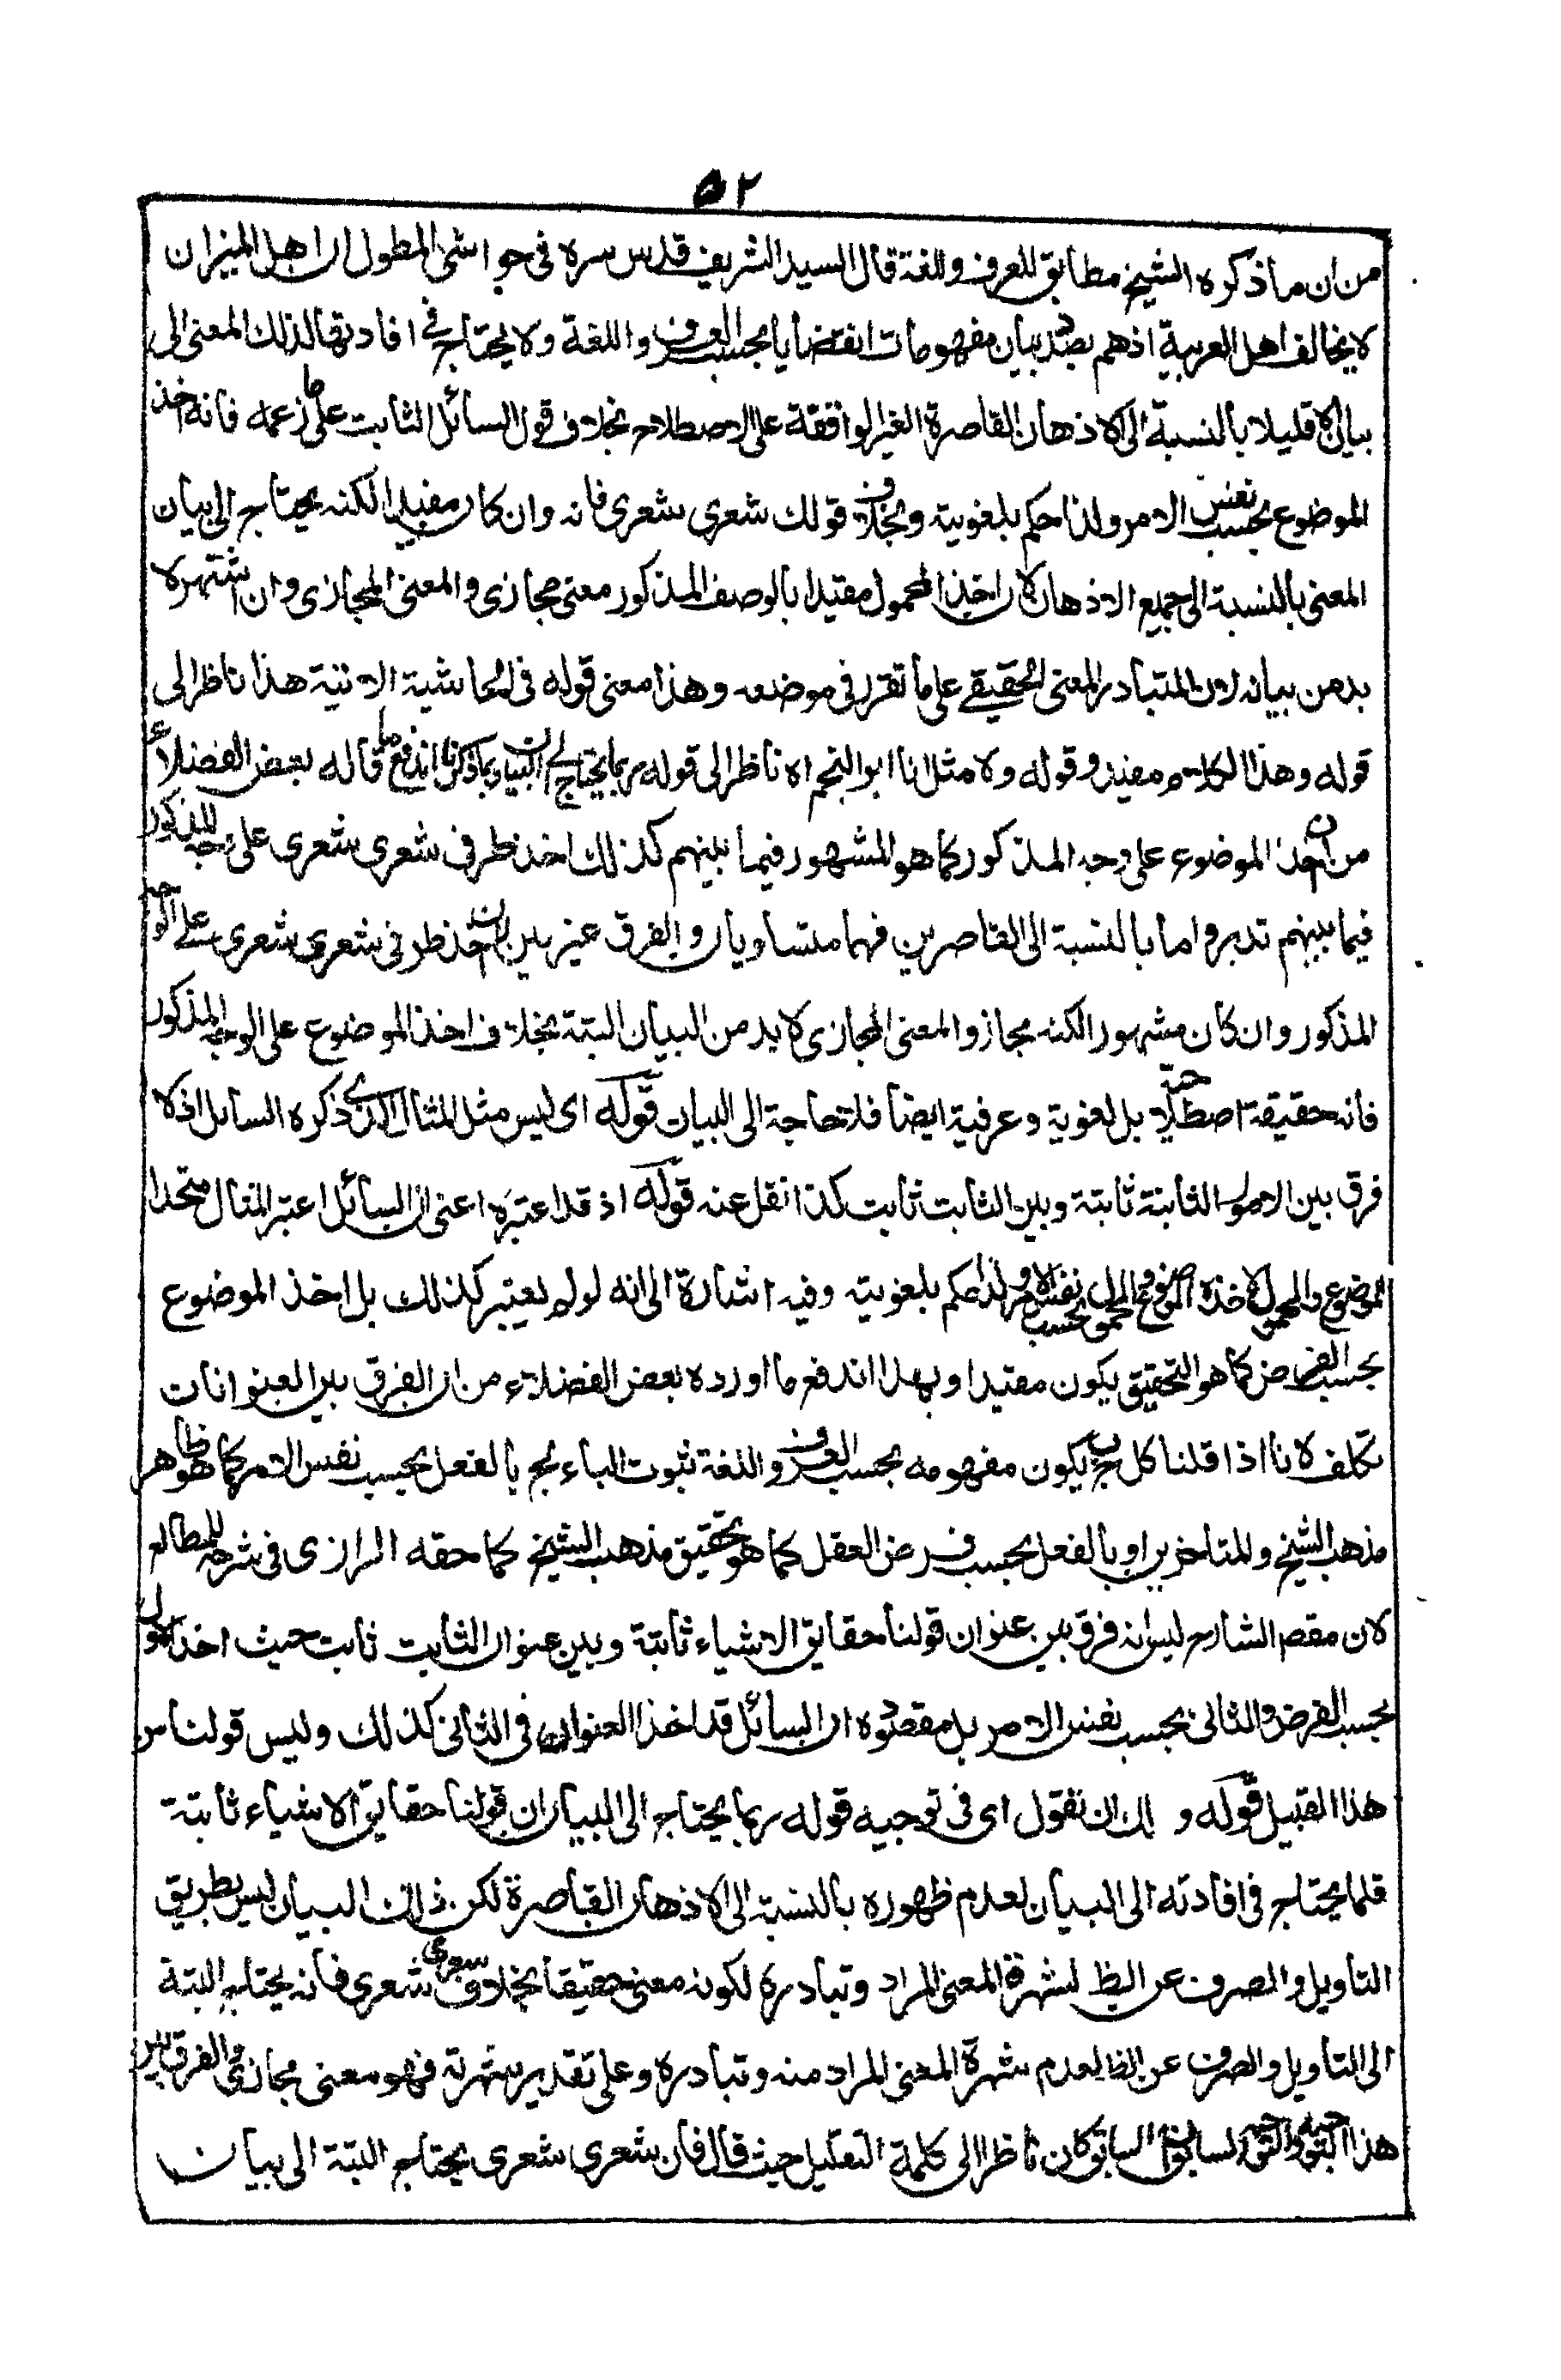 ٥٢
من ان ما ذكره الشيخ مطابق للعرف واللغة قال السيد الشريف قدس سره فى حواشى المطول ان اهل الميزان
لا يخالف اهل العربية اذ هم بصدد بيان مفهومات القضايا بحسب العرف واللغة ولا يحتاج فى افادتها لذلك المعنى الى
بيان الا قليلا بالنسبة الى الاذهان القاصرة الغير الواقفة على الاصطلاح بخلاف قول السائل الثابت على ما زعمه فانه اخذ
الموضوع بحسب نفس الامر ولذا حكم بلغويته وبخلاف قولك شعرى شعرى فانه وان كان مفيدا لكنه يحتاج الى بيان
المعنى بالنسبة الى جميع الاذهان لان اخذ المحمول مقيدا بالوصف المذكور معنى مجازى والمعنى المجازى وان اشتهر لا
بد من بيانه لان المتبادر المعنى الحقيقى على ما تقرر فى موضعه وهذا معنى قوله فى الحاشية الاتية هذا ناظر الى
قوله وهذا الكلام مفيد وقوله ولا مثل انا ابو النجم اه ناظر الى قوله ربما يحتاج الى البيان وبما ذكرنا اندفع ما قاله بعض الفضلاء
من ان اخذ الموضوع على وجه المذكور كما هو المشهور فيما بينهم كذلك اخذ طرفى شعرى شعرى على وجه المذكور
فيما بينهم تدبر واما بالنسبة الى القاصرين فهما متساويان والفرق غير بين لان اخذ طرفى شعرى شعرى على الوجه
المذكور وان كان مشهورا لكنه مجاز والمعنى المجازى لا بد من البيان البتة بخلاف اخذ الموضوع على الوجه المذكور
فانه حقيقة اصطلاحية بل لغوية وعرفية ايضا فلا حاجة الى البيان قوله اى ليس مثل المثال الذى ذكره السائل اذ لا
فرق بين الامور الثابتة ثابتة وبين الثابت ثابت كذا نقل عنه قوله اذ قد اعتبره اعنى ان السائل اعتبر المثال متحدا
الموضوع والمحمول لاخذه الموضوع والمحمول بحسب نفس الامر ولذا حكم بلغويته وفيه اشارة الى انه لو لم يعتبر كذلك بل اخذ الموضوع
بحسب الفرض كما هو التحقيق يكون مفيدا وبهذا اندفع ما اورده بعض الفضلاء من ان الفرق بين العنوانات
تكلف لانا اذا قلنا كل ج ب يكون مفهومه بحسب العرف واللغة ثبوت الباء لج بالفعل بحسب نفس الامر كما هو ظاهر
مذهب الشيخ والمتاخرين او بالفعل بحسب فرض العقل كما هو تحقيق مذهب الشيخ كما حققه الرازى فى شرحه للمطالع
لان مقصد الشارح ليس انه فرق بين عنوان قولنا حقايق الاشياء ثابتة وبين عنوان الثابت ثابت حيث اخذ الاول
بحسب الفرض والثانى بحسب نفس الامر بل مقصوده ان السائل قد اخذ العنوان فى الثانى كذلك وليس قولنا من
هذا القبيل قوله و لك ان تقول اى فى توجيه قوله ربما يحتاج الى البيان ان قولنا حقايق الاشياء ثابتة
قلما يحتاج فى افادته الى البيان لعدم ظهوره بالنسبة الى الاذهان القاصرة لكن ذلك البيان ليس بطريق
التاويل والصرف عن الظ لشهرة المعنى المراد وتبادره لكونه معنى حقيقيا بخلاف شعرى شعرى فانه يحتاج البتة
الى التاويل والصرف عن الظ لعدم شهرة المعنى المراد منه وتبادره وعلى تقدير شهرته فهو معنى مجازى والفرق بين
هذا التوجيه والتوجيه السابق ان السابق كان ناظرا الى كلمة التعليل حيث قال فان شعرى شعرى يحتاج البتة الى بيان